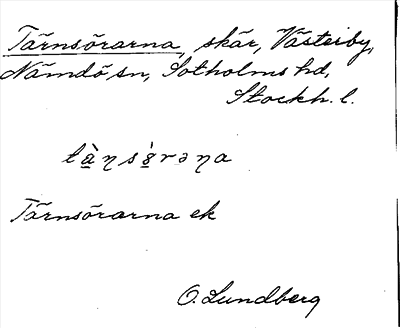 Tärnsörarna, skär, Västerby,
Nämdö sn, Sotholms hd,
Stockh. l.
Tärnsörarna ek
O. Lundberg